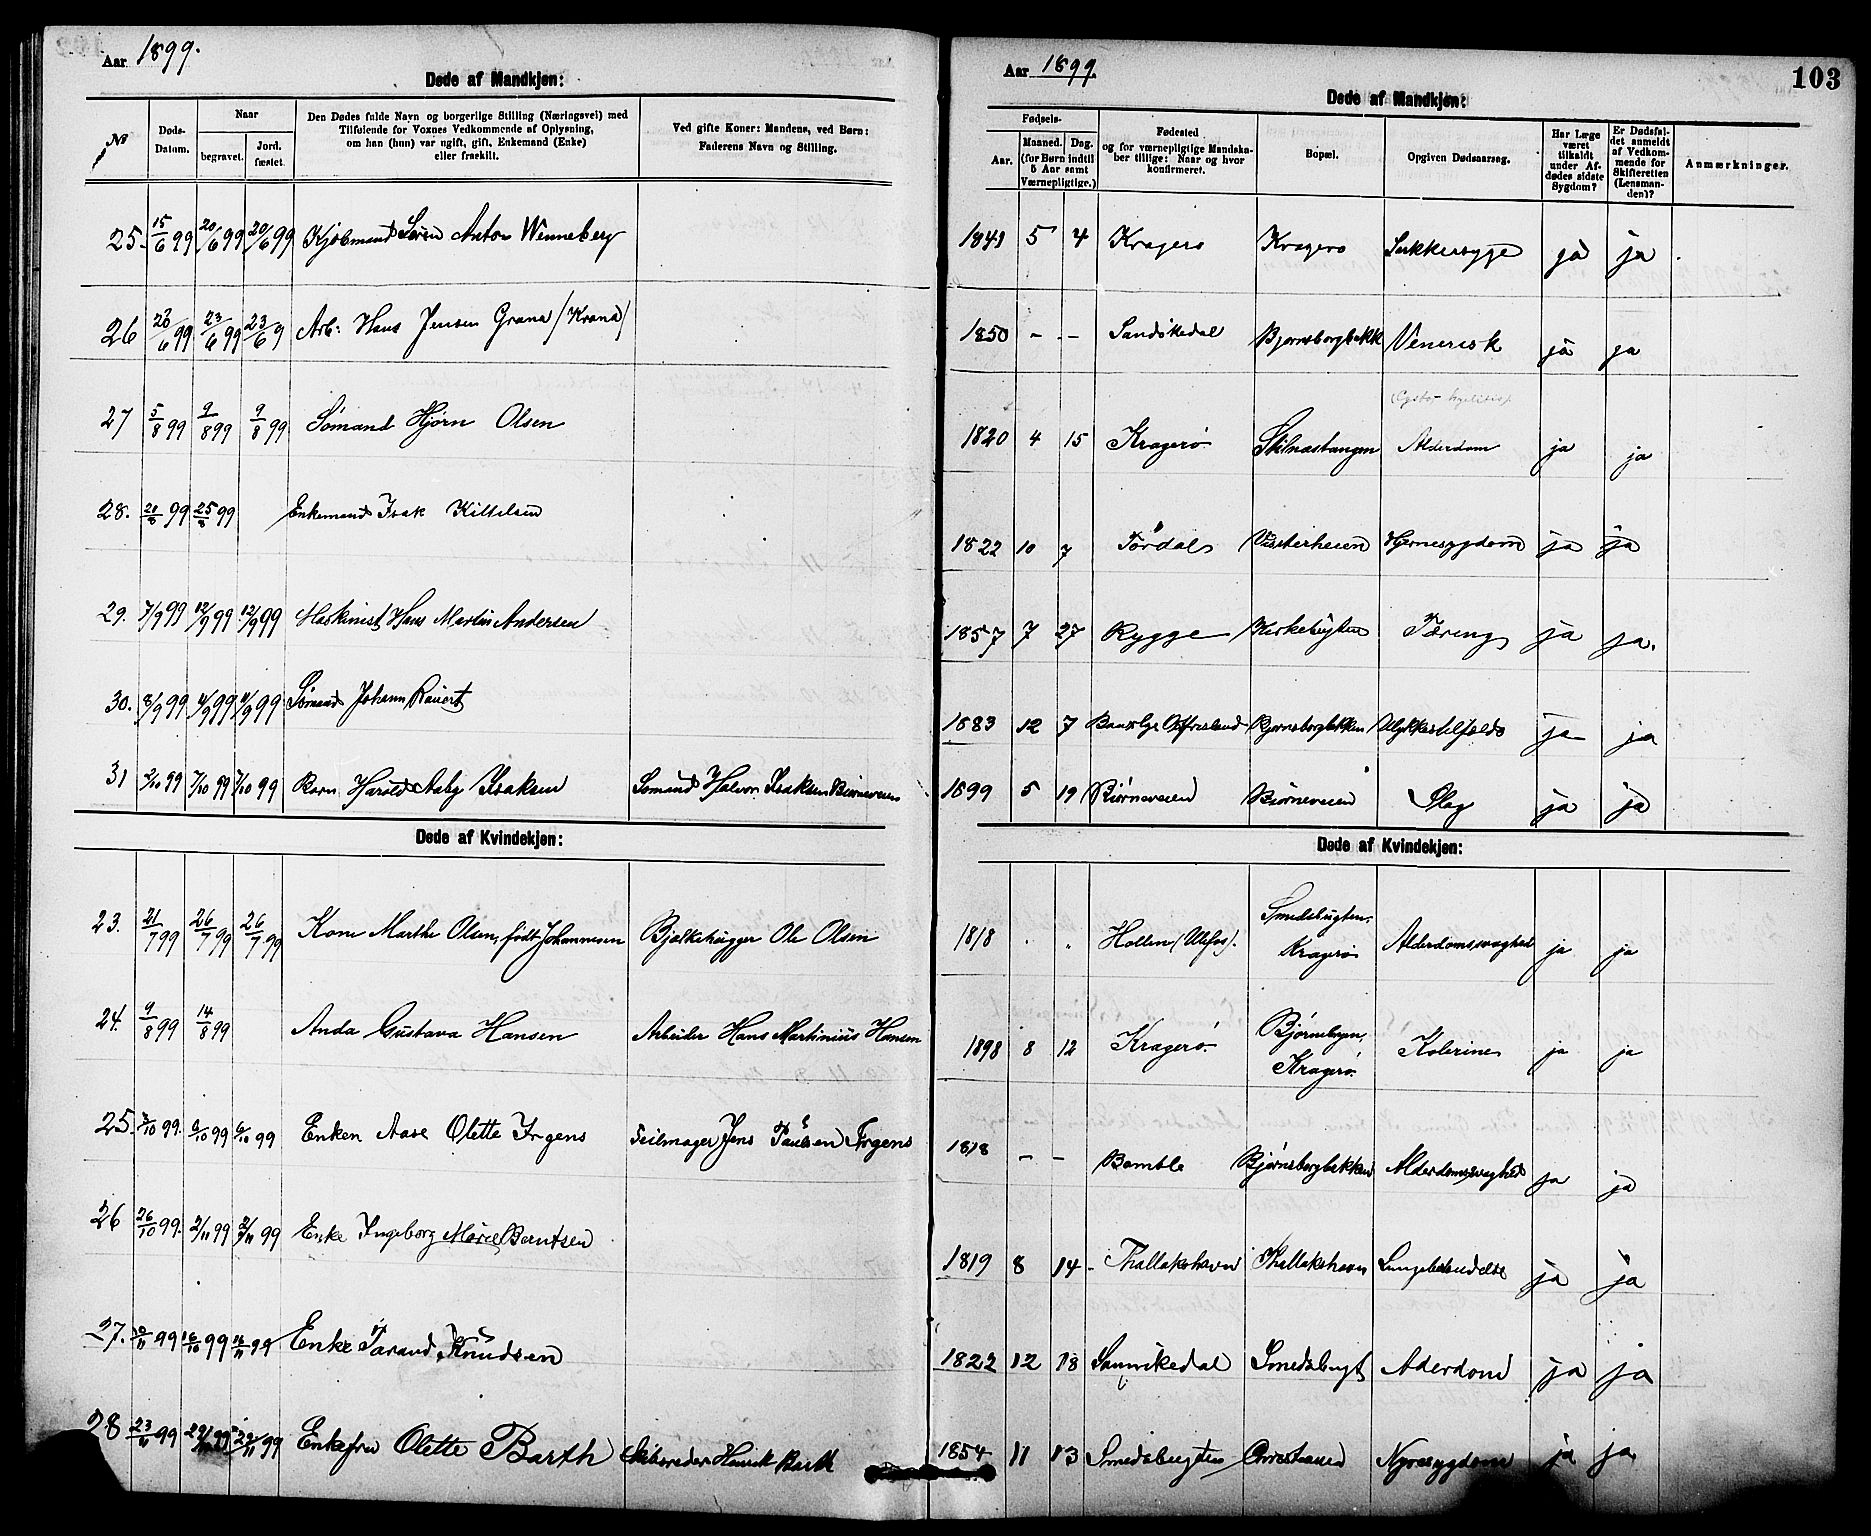 Aar 1899.
Døde af Mandkjøn:
№
Døds-Datum.
Naar
begravet.
Jord. fæstet.
Den Dødes fulde Navn og borgerlige Stilling (Næringsvei) med
Tilføiende for Voxnes Vedkommende af Oplysning,
om han (hun) var ugift, gift, Enkemand (Enke)
eller fraskilt.
Ved gifte Koner: Mandens, ved Børn:
Faderens Navn og Stilling.
25. 15/6 99 20/6 99 20/6 99 Kjøbmand Søren Anton Wenneberg
26 20/6 99 23/6 99 23/6 9 Arb: Hans Jensen Grana /Krana/
27 5/8 99 9/8 99 9/8 99 Sømand Hjørn Olsen
28. 20/8 99 25/8 99 Enkemand Isak Kittelsen
29. 7/9 99 12/9 99 12/9 99 Maskinist Hans Martin Andersen
30. 8/9 99 11/9 99 11/9 99 Sømand Johann
31 2/10 99 7/10 99 7/10 99 Barn Harald Aaby Isaksen Sømand Halvor Isaksen Biørneveien
Døde af Kvindekjøn:
23. 21/7 99 26/7 99 26/7 99 Kone Marthe Olsen, født Johannesen Bjelkehugger Ole Olsen
24. 9/8 99 14/8 99 Anda Gustava Hansen Arbeider Hans Martinius Hansen
25. 2/10 99. 6/10 99 6/10 99 Enken Aase Olette Irgens Seilmager Jens Paulsen Irgens
26 26/10 99. 2/11 99 2/11 99 Enke Ingeborg Marie Berntsen
27. 10/11 99 16/10 99 16/11 99 Enke Tarand Knudsen
28 23/11 99 29/11 99 29/11 99 Enkefru Olette Barth Skibsreder Henrik Barth
Aar 1899.
103
Døde af Mandkjøn:
Fødsels-
Aar.
Maaned. Dag.
(for Børn indtil
5 Aar samt
Værnepligtige.)
Fødested
og for værnepligtige Mandska-
ber tillige: Naar og hvor
konfirmeret.
Bopæl.
Opgiven Dødsaarsag.
Har Læge
været
tilkaldt
under Af-
dødes sidste
Sygdom?
Er Dødsfal-
det anmeldt
af Vedkom-
mende for
Skifteretten
(Lensman-
den)?
Anmærkninger.
1841 5 4 Kragerø Kragerø Sukkersyge ja ja
1850 - - Sandökedal Bjørnsborgbekk Venerisk ja ja
1820 4 15 Kragerö Skilnastangen Alderdom ja ja
1822 10 7 Tördal Vesterheien Hjernesygdom ja ja
1857 7 27 Rygge Kirkebugten Tæring ja ja.
1883 12 7 Ostfriesland Bjørnsborgbekken Ulykkestilfælde ja ja
1899 5 19 Biørneveien Biørneveien Slag ja ja
Døde af Kvindekjøn:
1818 . . Hollen (Ulefos). Smedsbugten, Kragerö Alderdomssvaghed ja ja
1898 8 12 Kragerö. Bjørnebyen, Kragerö. Kolerine ja ja
1818 - - Bamble Bjørnsborgbekken Alderdomssvaghed ja ja
1819 8 14 - Thallakshavn Thallakshavn Lungebetændelse ja ja
1822 12 18 Sannikedal Smedsbugt Aderdom ja ja
1854 11 13 Smedsbugten Christiansand Nyresygdom ja ja